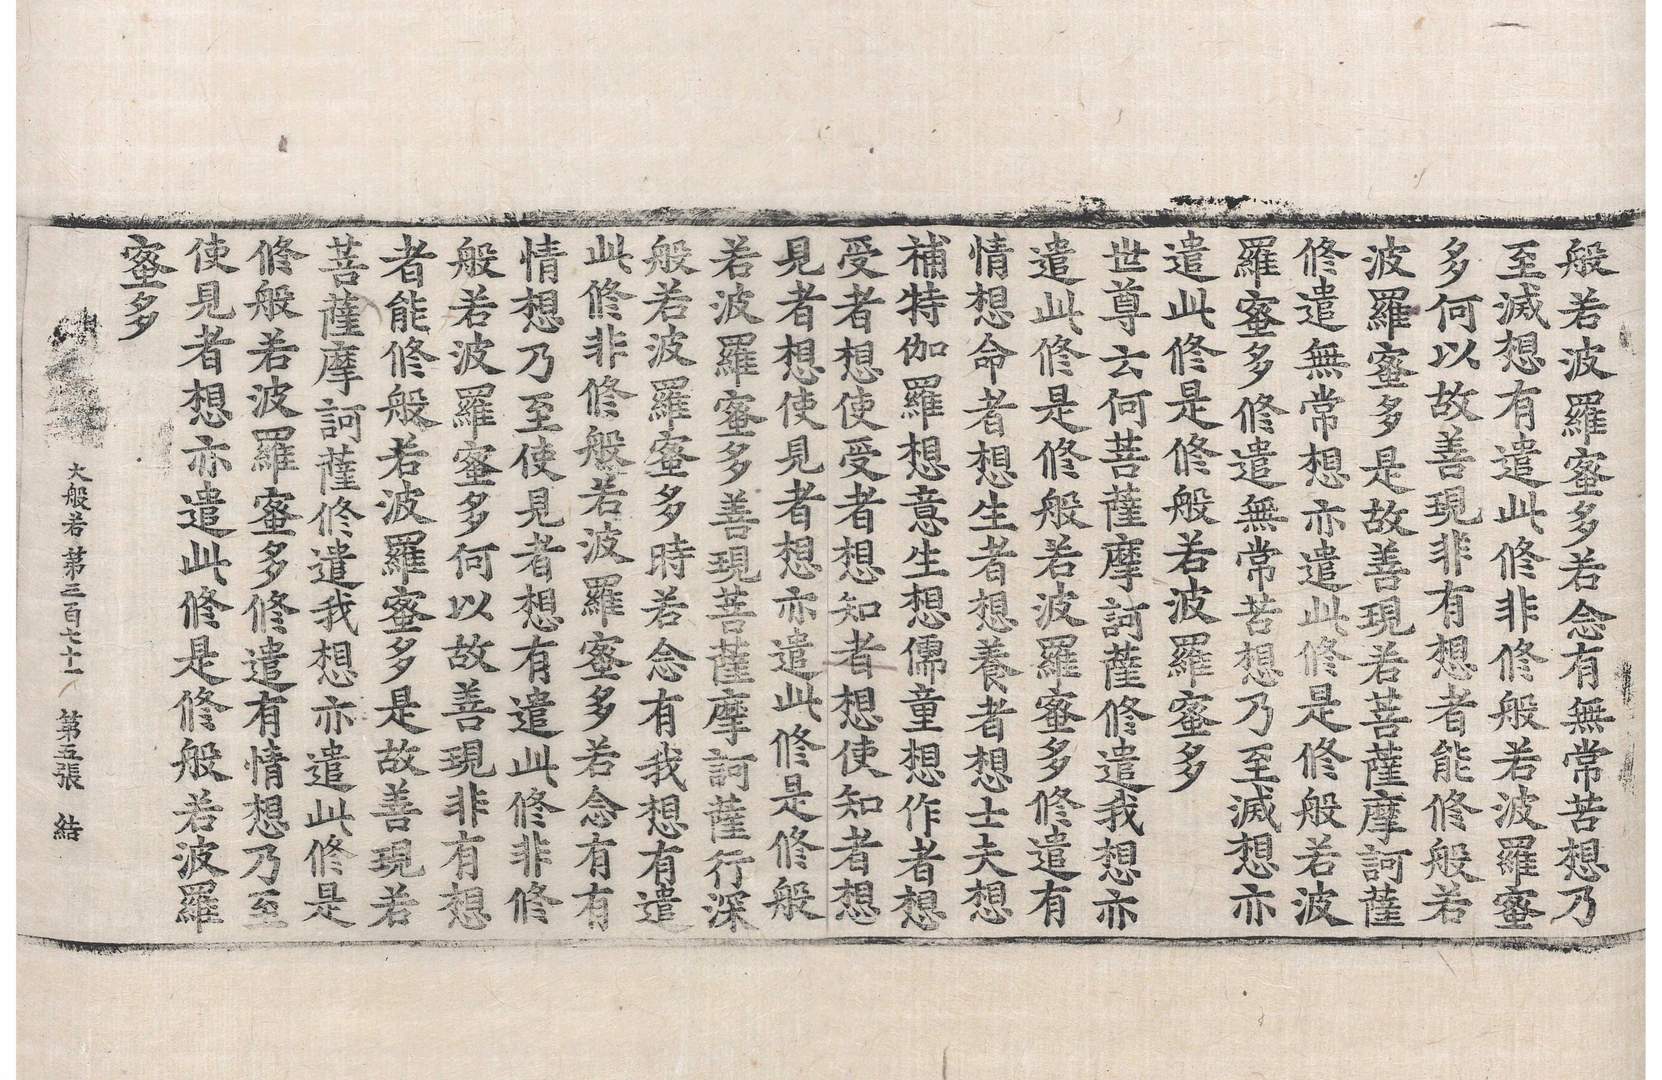 般若波羅蜜多若念有無常苦想乃
至滅想有遣此修非修般若波羅蜜
多何以故善現非有想者能修般若
波羅蜜多是故善現若菩薩摩訶薩
修遣無常想亦遣此修是修般若波
羅蜜多修遣無常苦想乃至滅想亦
遣此修是修般若波羅蜜多
世尊云何菩薩摩訶薩修遣我想亦
遣此修是修般若波羅蜜多修遣有
情想命者想生者想養者想士夫想
補特伽羅想意生想儒童想作者想
受者想使受者想知者想使知者想
見者想使見者想亦遣此修是修般
若波羅蜜多善現菩薩摩訶薩行深
般若波羅蜜多時若念有我想有遣
此修非修般若波羅蜜多若念有有
情想乃至使見者想有遣此修非修
般若波羅蜜多何以故善現非有想
者能修般若波羅蜜多是故善現若
菩薩摩訶薩修遣我想亦遣此修是
修般若波羅蜜多修遣有情想乃至
使見者想亦遣此修是修般若波羅
蜜多
大般若第三百七十一 第五張 結